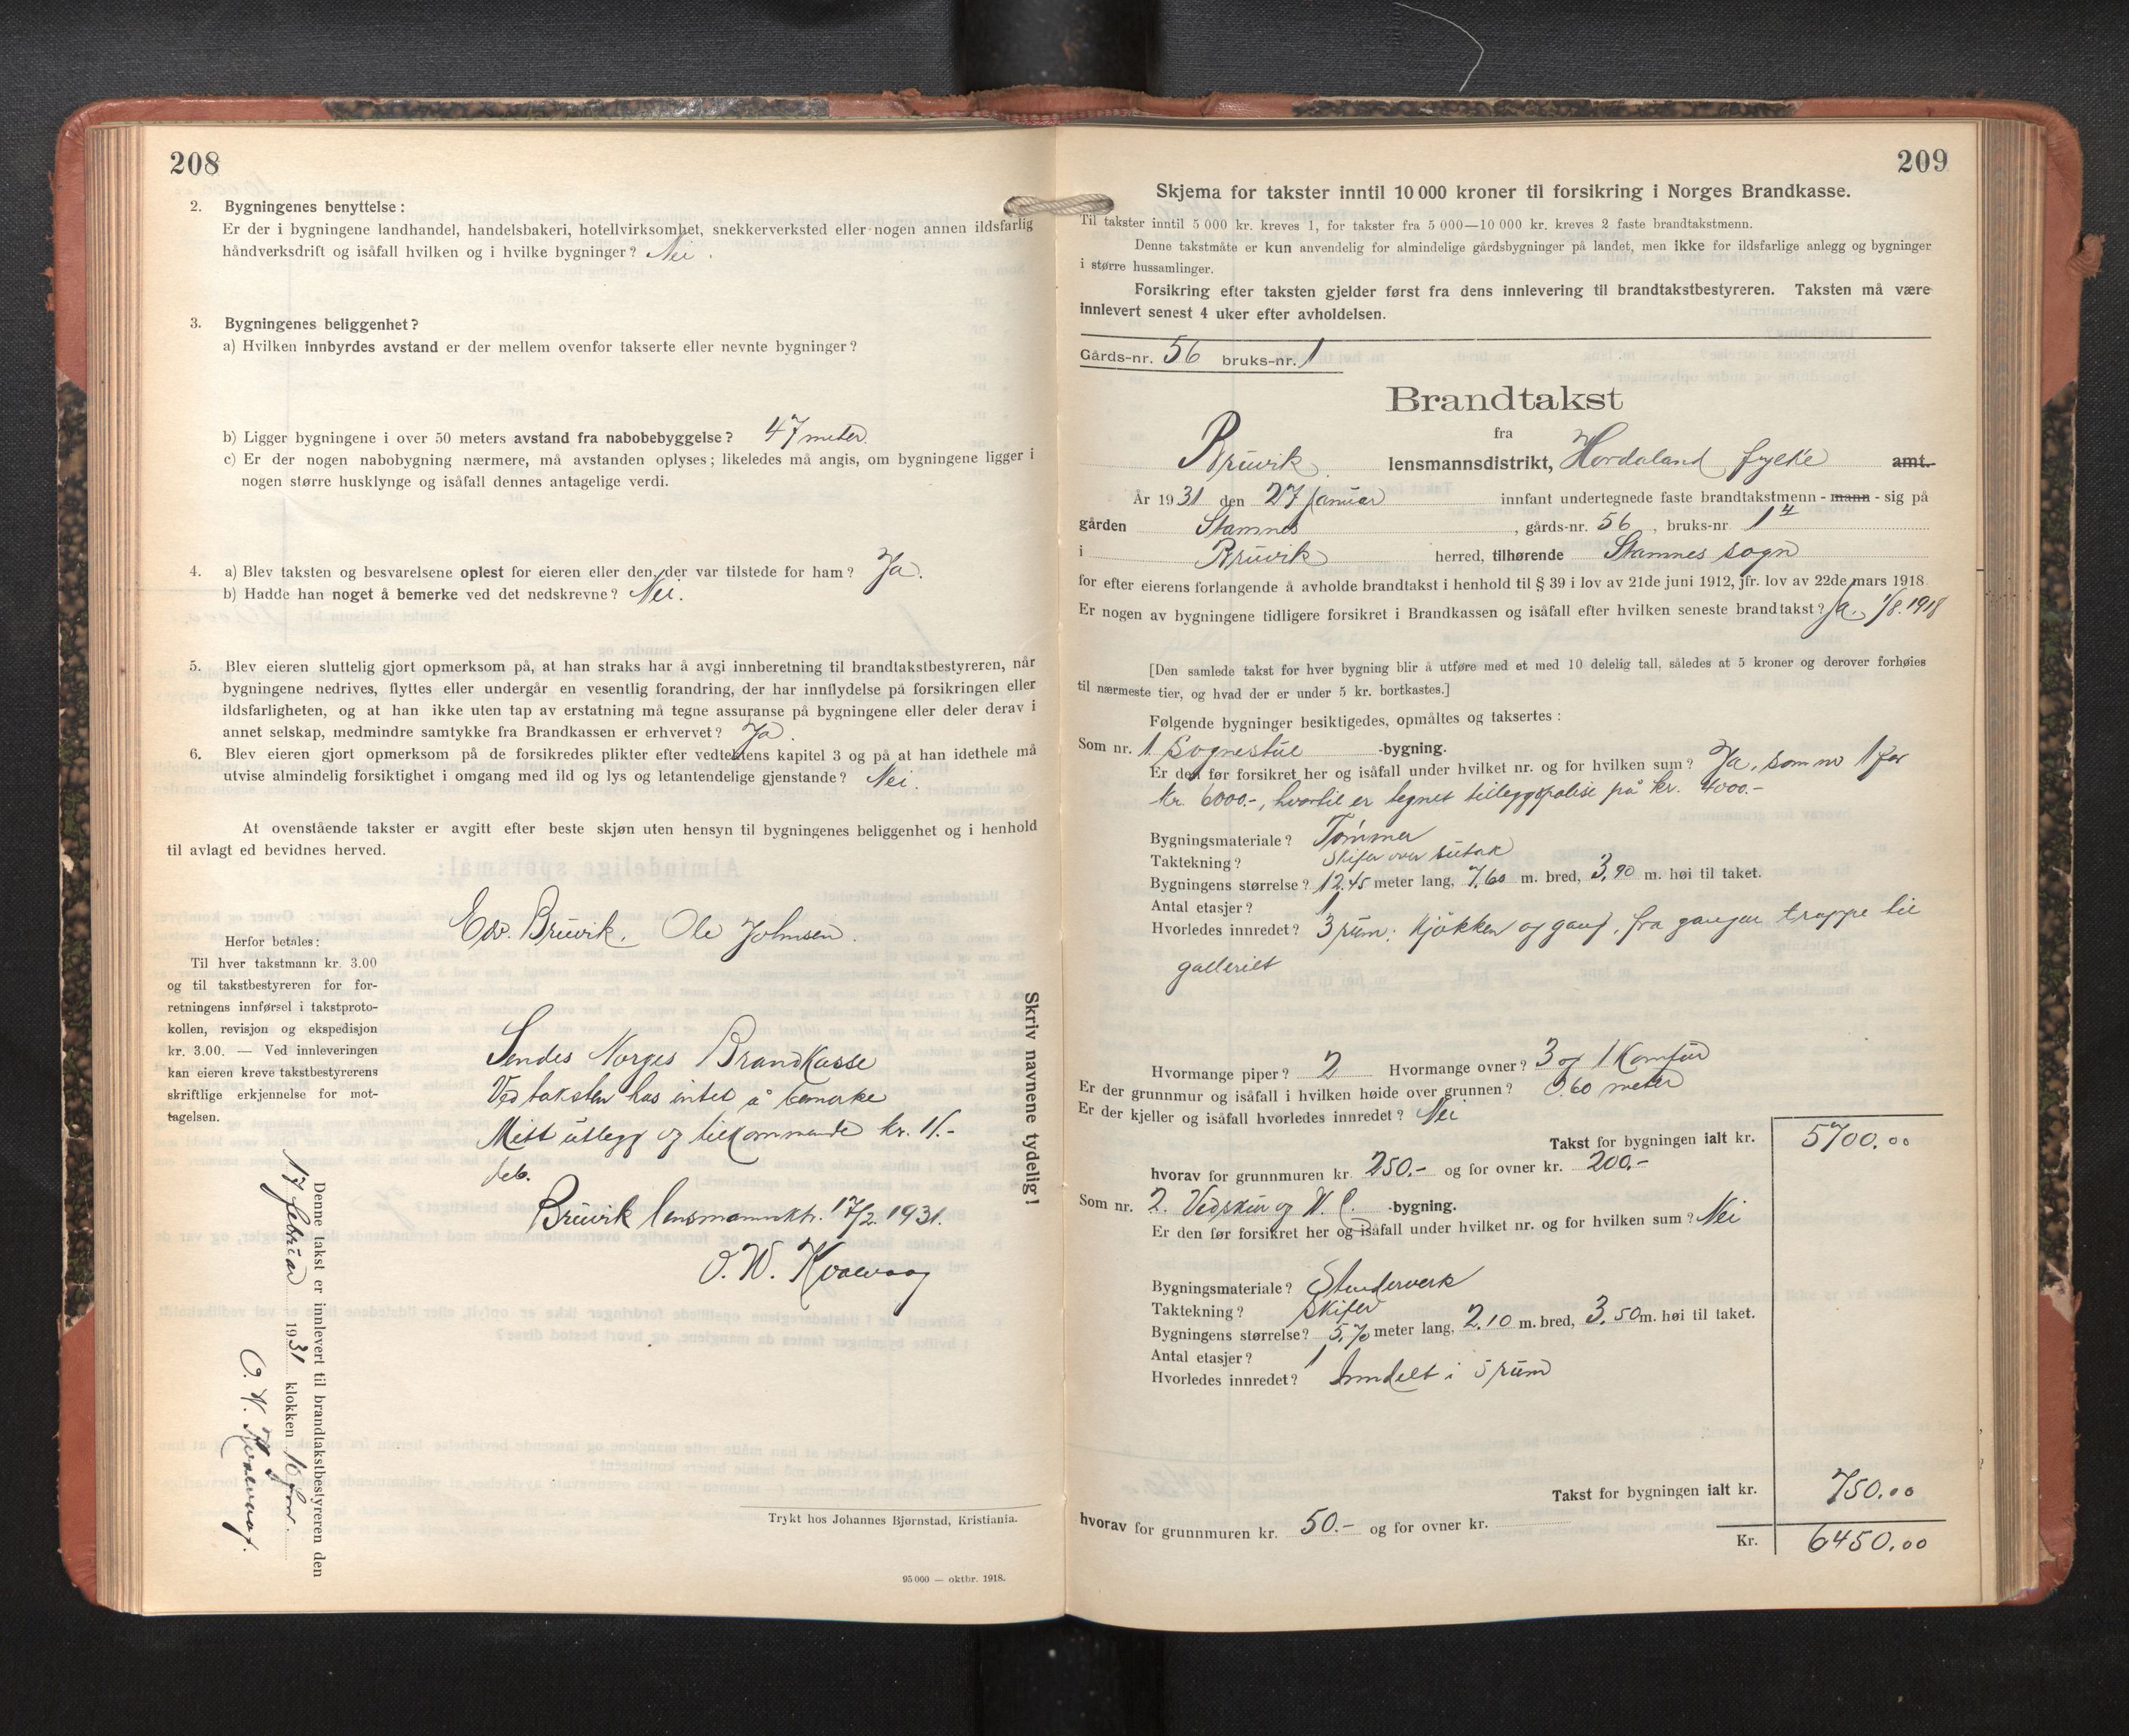 208
2. Bygningenes benyttelse:
Er der i bygningene landhandel, handelsbakeri, hotellvirksomhet, snekkerverksted eller nogen annen ildsfarlig
håndverksdrift og isåfall hvilken og i hvilke bygninger? Nei.
3. Bygningenes beliggenhet?
a) Hvilken innbyrdes avstand er der mellem ovenfor takserte eller nevnte bygninger?
b) Ligger bygningene i over 50 meters avstand fra nabobebyggelse? 47 meter.
c) Er der nogen nabobygning nærmere, må avstanden oplyses; likeledes må angis, om bygningene ligger i
nogen større husklynge og isåfall dennes antagelige verdi.
4. a) Blev taksten og besvarelsene oplest for eieren eller den, der var tilstede for ham? Ja.
b) Hadde han noget å bemerke ved det nedskrevne? Nei.
5. Blev eieren sluttelig gjort opmerksom på, at han straks har å avgi innberetning til brandtakstbestyreren, når
bygningene nedrives, flyttes eller undergår en vesentlig forandring, der har innflydelse på forsikringen eller
ildsfarligheten, og at han ikke uten tap av erstatning må tegne assuranse på bygningene eller deler derav i
annet selskap, medmindre samtykke fra Brandkassen er erhvervet? Ja.
6. Blev eieren gjort opmerksom på de forsikredes plikter efter vedtektens kapitel 3 og på at han idethele må
utvise almindelig forsiktighet i omgang med ild og lys og letantendelige gjenstande? Nei.
At ovenstående takster er avgitt efter beste skjøn uten hensyn til bygningenes beliggenhet og i henhold
til avlagt ed bevidnes herved.
Edv. Bruvik. Ole Johnsen.
Herfor betales:
Til hver takstmann kr. 3.00
og til takstbestyreren for for-
retningens innførsel i takstproto-
kollen, revisjon og ekspedisjon
kr. 3.00. — Ved innleveringen
kan eieren kreve takstbestyrerens
skriftlige erkjennelse for mot-
tagelsen.
Sendes Norges Brandkasse
Ved taksten has intet å bemerke
Mitt utlegg og tilkommende kr. 11.-
feb.
Bruvik lensmannsktr. 17/2. 1931.
O. W. Kvalevaag
Skriv navnene tydelig!
Denne takst er innlevert til brandtakstbestyreren den
17 februar 1931 klokken 10 for.
O. W. Kvalevaag.
Trykt hos Johannes Bjørnstad, Kristiania.
95 000 — oktbr. 1918.
209
Skjema for takster inntil 10 000 kroner til forsikring i Norges Brandkasse.
Til takster inntil 5 000 kr. kreves 1, for takster fra 5 000—10 000 kr. kreves 2 faste brandtakstmenn.
Denne takstmåte er kun anvendelig for almindelige gårdsbygninger på landet, men ikke for ildsfarlige anlegg og bygninger
i større hussamlinger.
Forsikring efter taksten gjelder først fra dens innlevering til brandtakstbestyreren. Taksten må være
innlevert senest 4 uker efter avholdelsen.
Gårds-nr. 56 bruks-nr. 1
Brandtakst
fra
Bruvik lensmannsdistrikt, Hordaland fylke amt.
År 1931 den 27 januar innfant undertegnede faste brandtakstmenn - mann - sig på
gården Stamnes, gårds-nr. 56, bruks-nr 1 4
i Bruvik herred, tilhørende Stamnes sogn
for efter eierens forlangende å avholde brandtakst i henhold til § 39 i lov av 21de juni 1912, jfr. lov av 22de mars 1918.
Er nogen av bygningene tidligere forsikret i Brandkassen og isåfall efter hvilken seneste brandtakst? Ja. 1/8. 1918
[Den samlede takst for hver bygning blir å utføre med et med 10 delelig tall, således at 5 kroner og derover forhøies
til nærmeste tier, og hvad der er under 5 kr. bortkastes.]
Følgende bygninger besiktigedes, opmåltes og taksertes:
Som nr. 1. Sognestue -bygning.
Er den før forsikret her og isåfall under hvilket nr. og for hvilken sum? Ja, som nr 1 for
kr. 6000.-, hvortil er tegnet tilleggspolise på kr. 4000.-
Bygningsmateriale? Tømmer
Taktekning? Skifer over sutak
Bygningens størrelse? 12.45 meter lang, 7.60 m. bred, 3,90 m. høi til taket.
Antal etasjer? 1
Hvorledes innredet? 3 rum, kjøkken og gang, fra gangen trappe til
galleriet
Hvormange piper? 2 Hvormange ovner? 3 og 1 Komfur
Er der grunnmur og isåfall i hvilken høide over grunnen? 0.60 meter
Er der kjeller og isåfall hvorledes innredet? Nei
Takst for bygningen ialt kr. 5700.00
hvorav for grunnmuren kr. 250.- og for ovner kr. 200.-
Som nr. 2. Vedskur og W. C. -bygning.
Er den før forsikret her og isåfall under hvilket nr. og for hvilken sum? Nei
Bygningsmateriale? Stenderverk
Taktekning? Skifer
Bygningens størrelse? 5,70 meter lang, 2.10 m. bred, 3.50 m. høi til taket.
Antal etasjer? 1
Hvorledes innredet? Inndelt i 5 rum
Takst for bygningen ialt kr. 750.00
hvorav for grunnmuren kr. 50.- og for ovner kr.
Kr. 6450.00